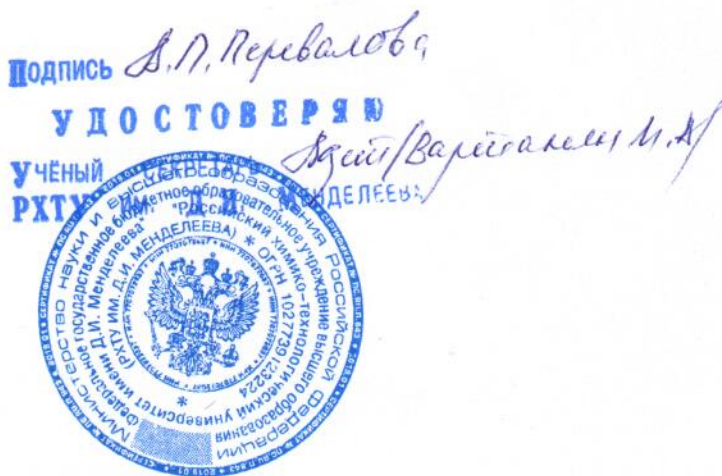 Подпись В.П. Перевалова
УДОСТОВЕРЯЮ
УЧЁНЫЙ СЕКРЕТАРЬ /Вартанян М.А/
РХТУ ИМ. Д.И. МЕНДЕЛЕЕВА
МИНИСТЕРСТВО НАУКИ И ВЫСШЕГО ОБРАЗОВАНИЯ РОССИЙСКОЙ ФЕДЕРАЦИИ
федеральное государственное бюджетное образовательное учреждение высшего образования
"Российский химико-технологический университет имени Д.И. Менделеева"
(РХТУ ИМ. Д.И. МЕНДЕЛЕЕВА) * ОГРН 1027739123224 *